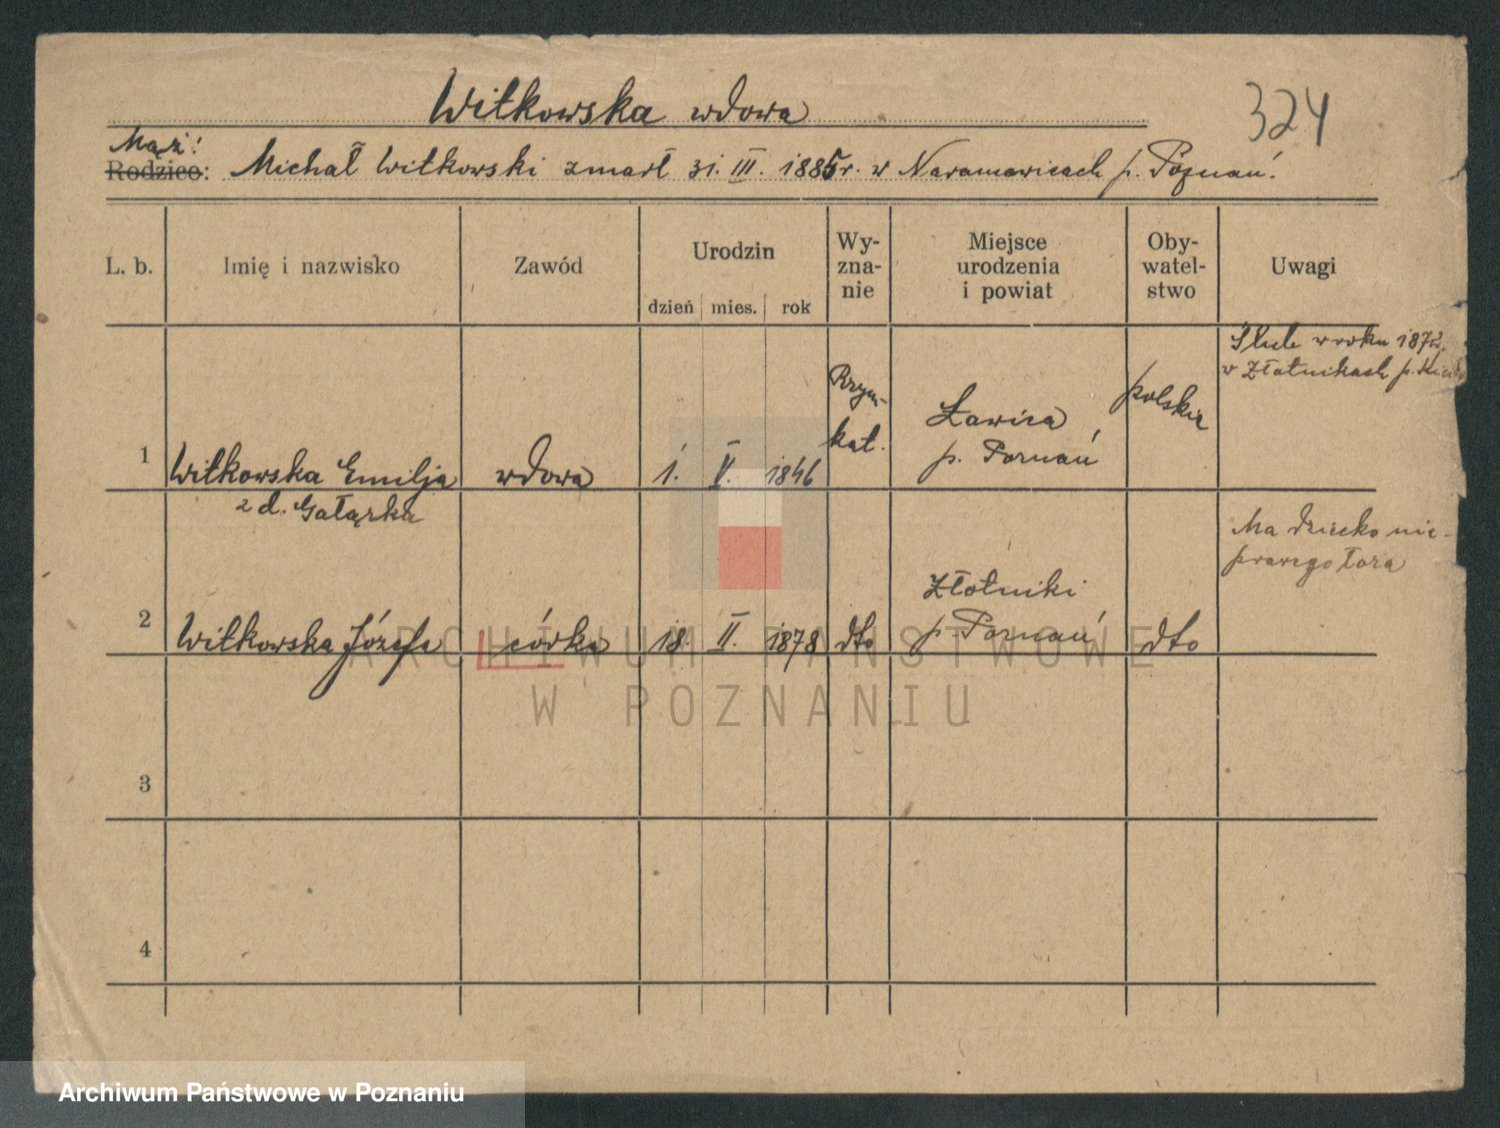 Witkowska wdowa
324
Mąż:
Rodzice: Michał Witkowski zmarł 31. III. 1885 r. w Naramowicach p. Poznań.
L. b. Imię i nazwisko Zawód Urodzin Wy-zna-nie Miejsce urodzenia i powiat Oby-watel-stwo Uwagi
dzień mies. rok
Ślub w roku 1872
w Złotnikach p.
1 Witkowska Emilja wdowa 1. V. 1846 Rzym-kat. Ławica p. Poznań polskie
z d. Gałązka
Ma dziecko nie-
prawego łoża
2 Witkowska Józefa córka 18. II. 1878 dto Złotniki p. Poznań dto
ARCHIWUM PAŃSTWOWE
W POZNANIU
3
4
Archiwum Państwowe w Poznaniu